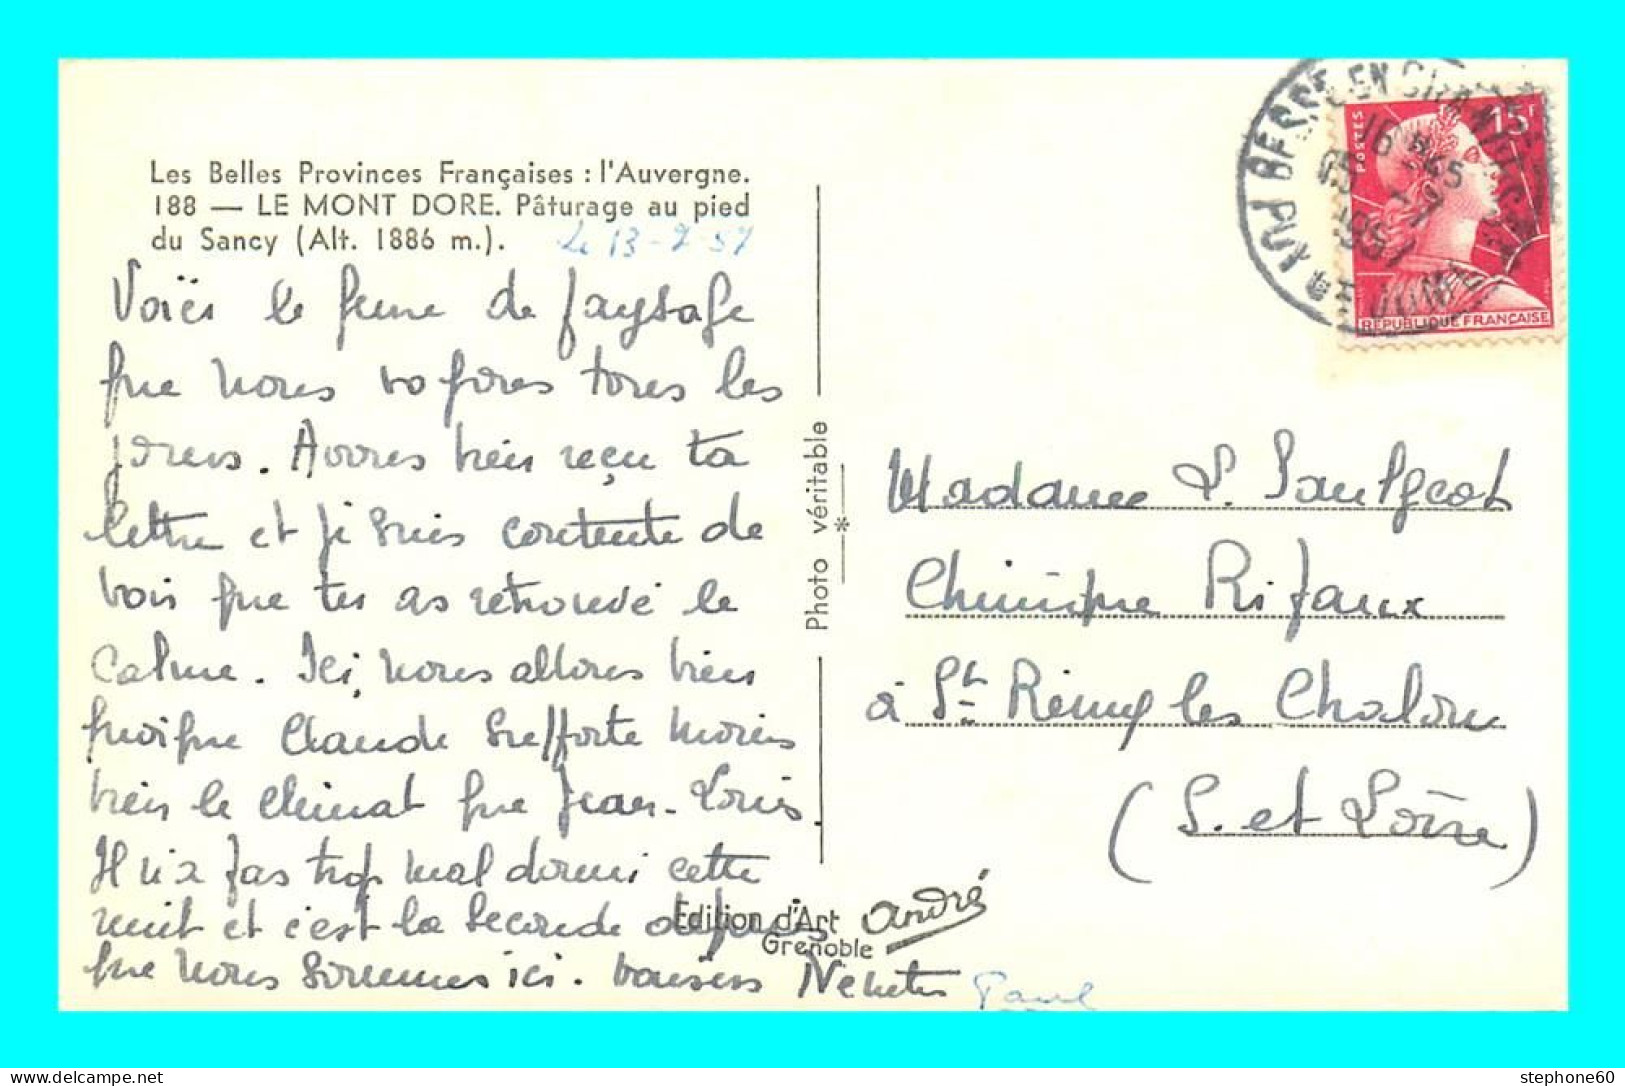 Les Belles Provinces Françaises : l'Auvergne.
188 — LE MONT DORE. Pâturage au pied
du Sancy (Alt. 1886 m.).
Le 13-7-57
Voici le genre de paysage
que nous voyons tous les
jours. Avons bien reçu ta
lettre et je suis contente de
voir que tu as retrouvé le
calme. Ici, nous allons bien
quoique Claude supporte moins
bien le climat que Jean-Louis
Il n'a pas trop mal dormi cette
nuit et c'est la seconde depuis
que nous sommes ici. baisers
Paul
Photo véritable
*
Edition d'Art André
Grenoble
BESSE EN CHANDESSE
PUY DE DOME
POSTES
15F
REPUBLIQUE FRANÇAISE
Madame
Clinique Rifaux
à St Rémy les Chalon
(S. et Loire)
stephone60